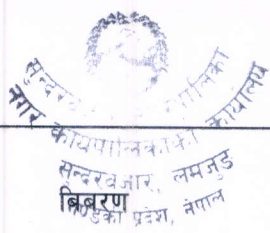 सुन्दरबजार नगरपालिका
नगर कार्यपालिकाको कार्यालय
सुन्दरबजार, लमजुङ
गण्डकी प्रदेश, नेपाल
बिबरण